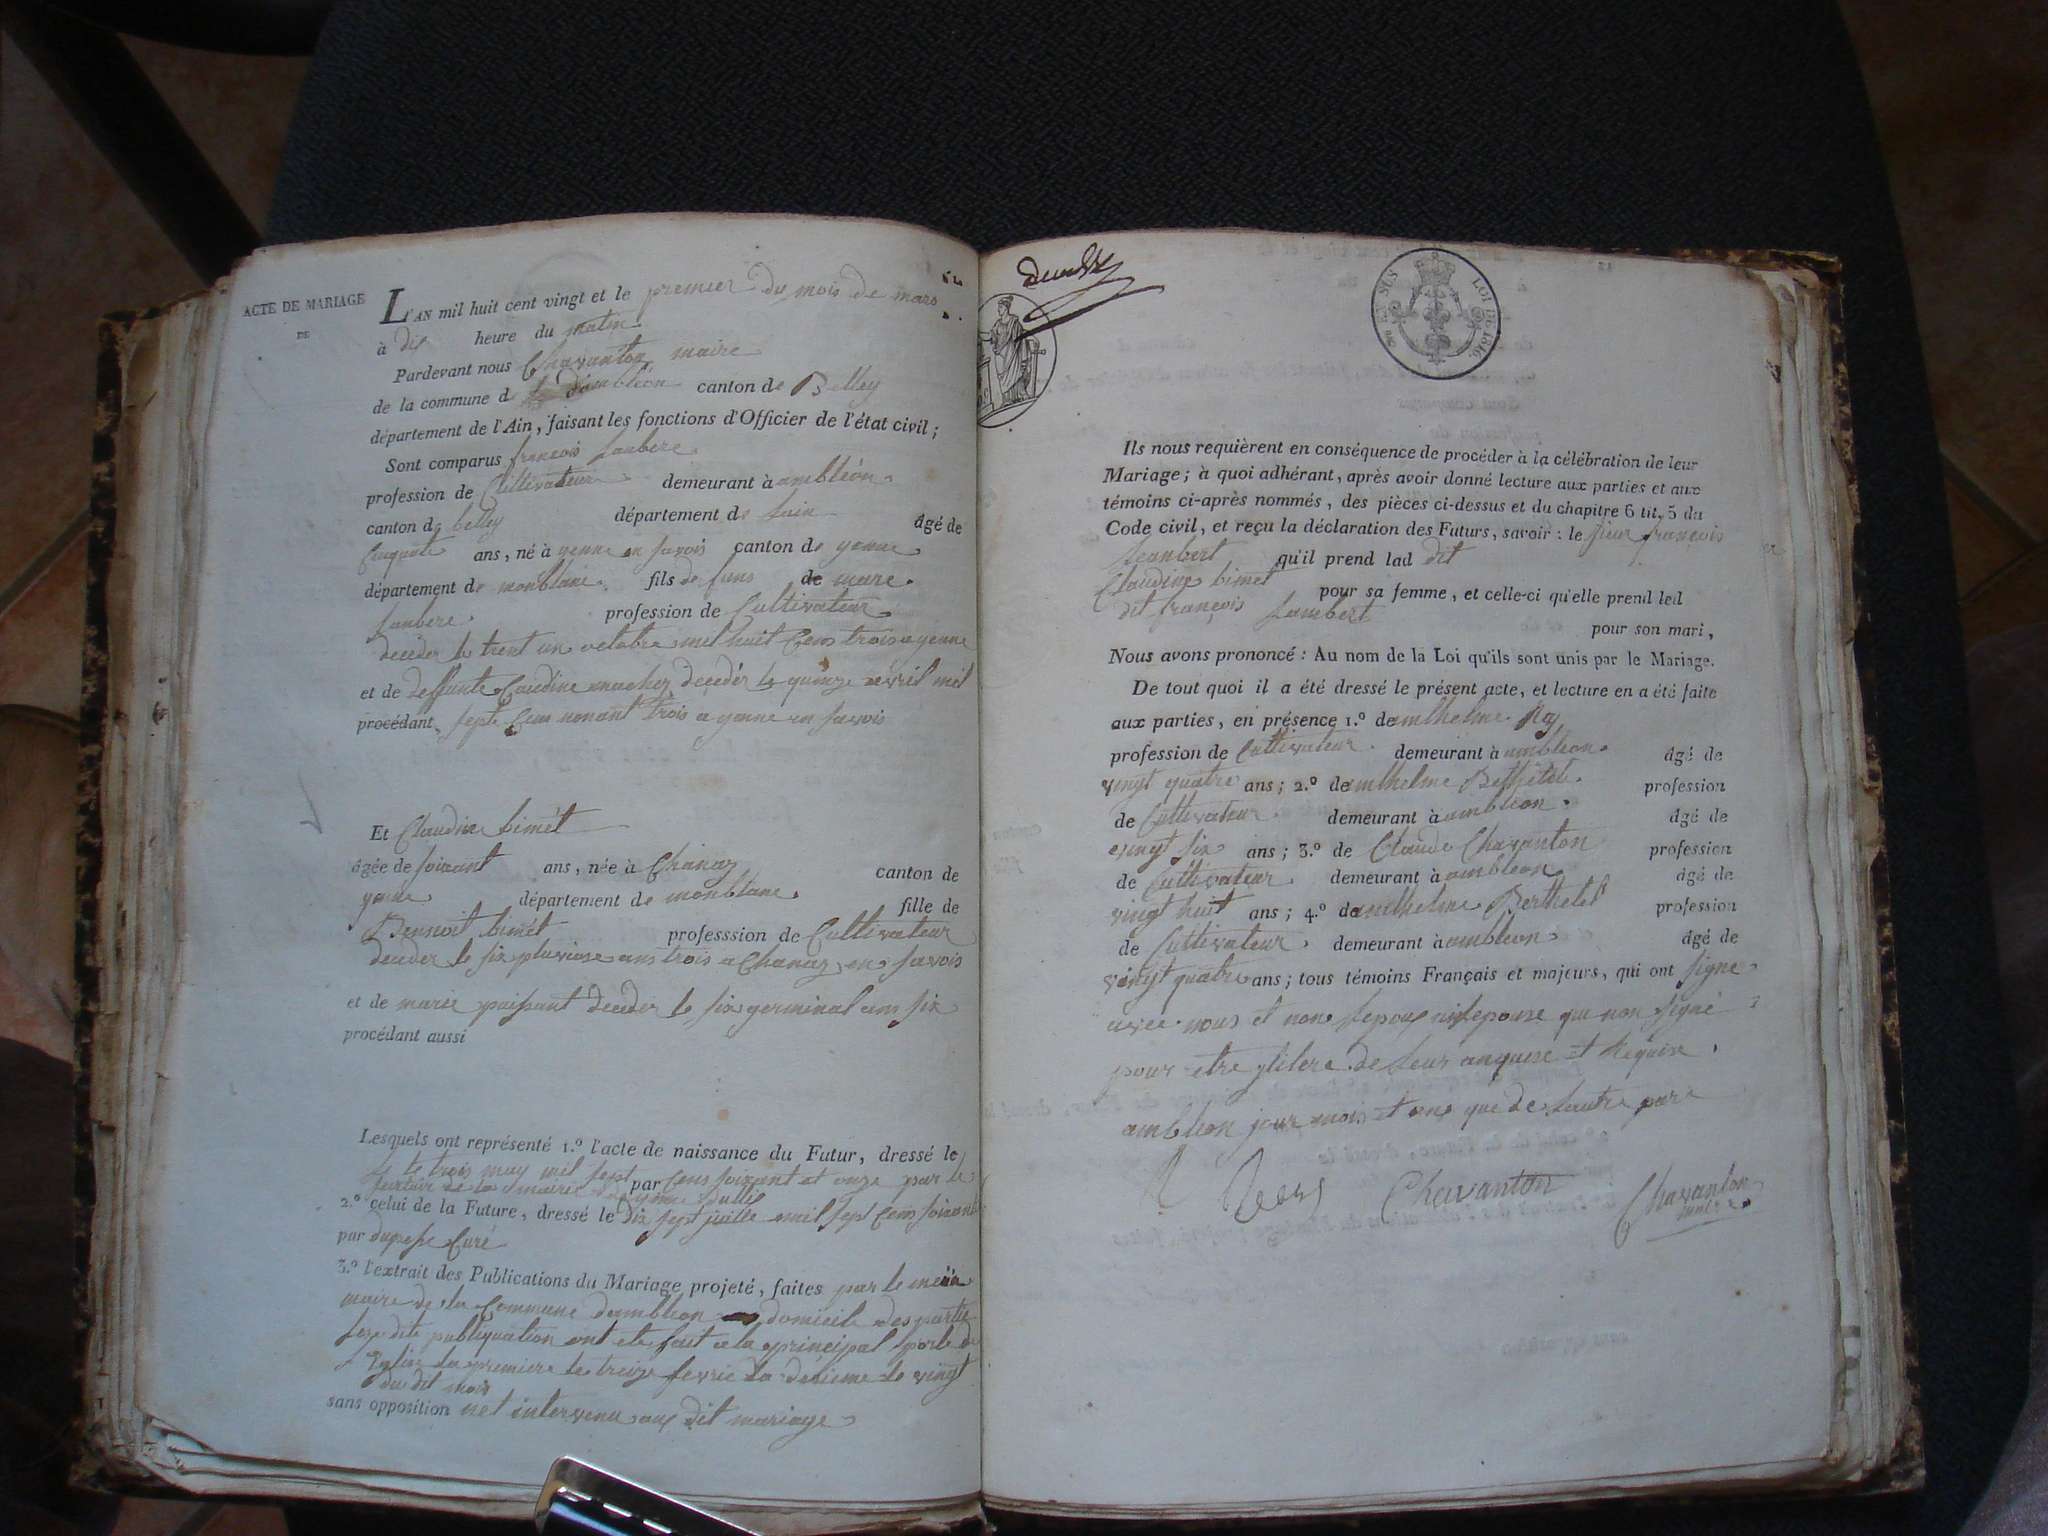 ACTE DE MARIAGE
DE
L'AN mil huit cent vingt et le premier du mois de mars
à dix heure du matin
Pardevant nous Chavanton maire
de la commune d d'ambléon canton de Belley
département de l'Ain, faisant les fonctions d'Officier de l'état civil;
Sont comparus francois Janbere
profession de Cultivateur demeurant à ambléon
canton de belley département de lain âgé de
Cinquante ans, né à yenne en Savois canton de yenne
département de monblanc fils de de marc
Janbere profession de Cultivateur
deceder le trent un octobre mil huit Cens trois a yenne
et de deffunte Claudine machez decedér le quinze avril mil
procédant sept Cens nonant trois a yenne en Savois
Et Claudine bimét
âgée de soixant ans, née à Chanaz canton de
yenne département de monblanc fille de
Bennoit bimét professsion de Cultivateur
deceder le six pluviose ans trois a Chanaz en Savois
et de marie paissant deceder le six germinal ans six
procédant aussi
Lesquels ont représenté 1.º l'acte de naissance du Futur, dressé le
le trois may mil sept par Cens soixant et onze par le
de la mairie de yenne
2.º celui de la Future, dressé le dix sept juille mil sept Cens soixante
par Curé
3.º l'extrait des Publications du Mariage projeté, faites par le
maire de la Commune dambleon domicile des partie
dite publiquation ont ete fait a la principal porte de
l'Eglise la premiere le treize fevrié la desieme le vingt
du dit mois
sans opposition net intervenu aux dit mariage
SUS LOI DE 1816.
Ils nous requièrent en conséquence de procéder à la célébration de leur
Mariage; à quoi adhérant, après avoir donné lecture aux parties et aux
témoins ci-après nommés, des pièces ci-dessus et du chapitre 6 tit. 5 du
Code civil, et reçu la déclaration des Futurs, savoir: le sieur françois
Jeanbert qu'il prend lad dit
Claudine bimet pour sa femme, et celle-ci qu'elle prend led
dit françois Jambert pour son mari,
Nous avons prononcé: Au nom de la Loi qu'ils sont unis par le Mariage.
De tout quoi il a été dressé le présent acte, et lecture en a été faite
aux parties, en présence 1.º de amthelme Roy
profession de Cultivateur demeurant à ambleon âgé de
vingt quatre ans; 2.º de amthelme Berthelet profession
de Cultivateur demeurant à ambleon âgé de
vingt six ans; 3.º de Claude Chavanton profession
de Cultivateur demeurant à ambleon âgé de
vingt huit ans; 4.º de amthelme Berthelet profession
de Cultivateur demeurant à ambleon âgé de
vingt quatre ans; tous témoins Français et majeurs, qui ont signe
avec nous et non lepoux nilepouse qui non signé
pour etre de leur enquise et Requise
ambleon jour mois et ans que de lautre para
Chavanton
Chavanton
maire